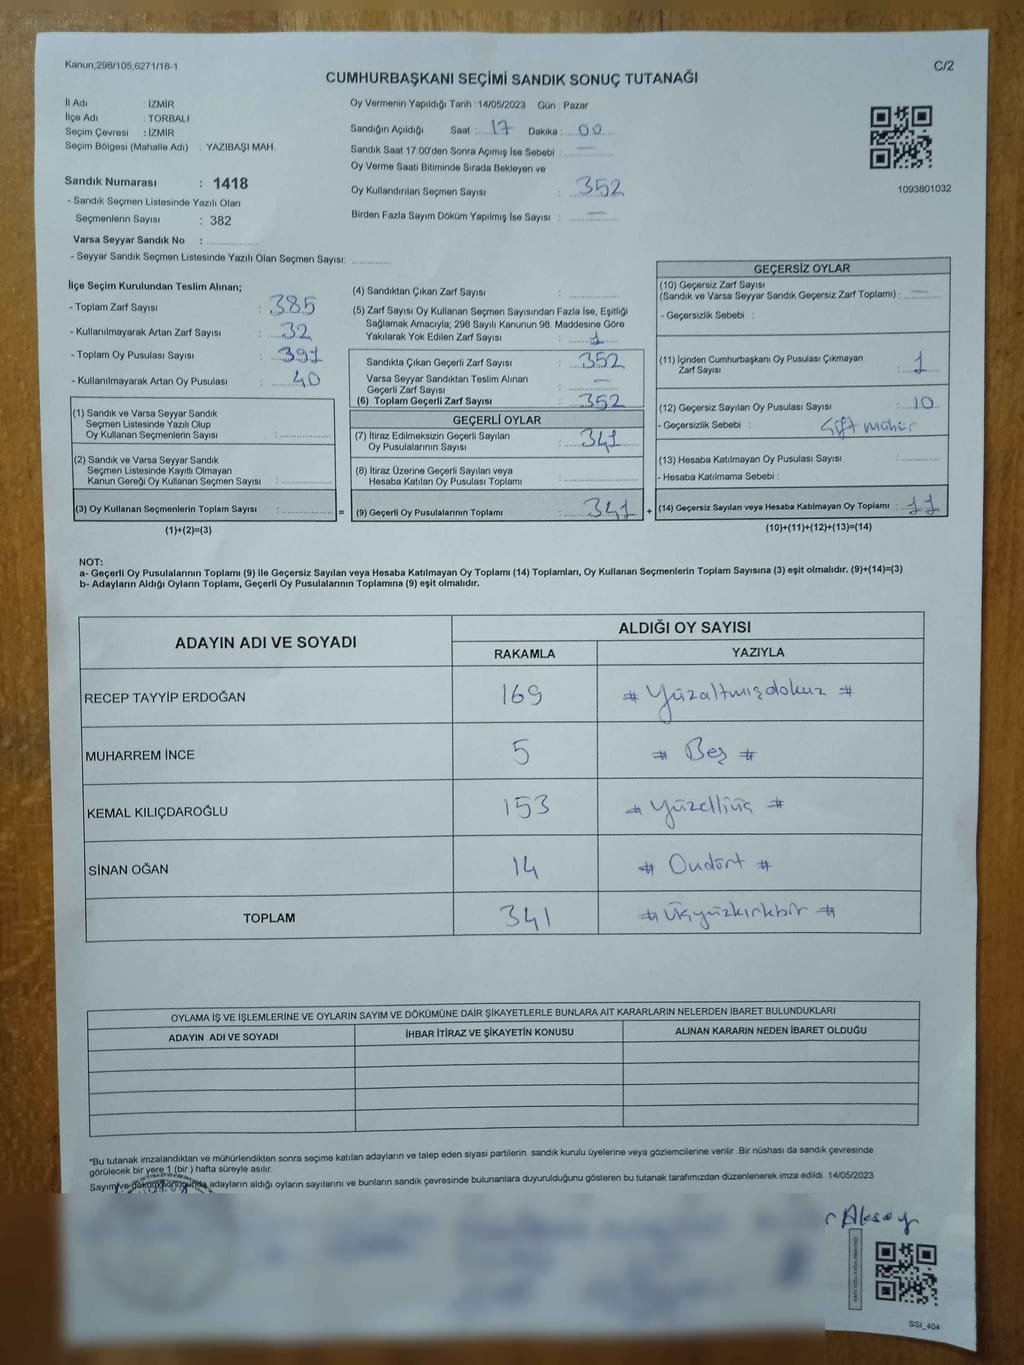 Kanun;298/105,6271/18-1
C/2
CUMHURBAŞKANI SEÇİMİ SANDIK SONUÇ TUTANAĞI
İl Adı : İZMİR
İlçe Adı : TORBALI
Seçim Çevresi : İZMİR
Seçim Bölgesi (Mahalle Adı) : YAZIBAŞI MAH.
Sandık Numarası : 1418
- Sandık Seçmen Listesinde Yazılı Olan
Seçmenlerin Sayısı : 382
Varsa Seyyar Sandık No :
- Seyyar Sandık Seçmen Listesinde Yazılı Olan Seçmen Sayısı:
Oy Vermenin Yapıldığı Tarih : 14/05/2023 Gün : Pazar
Sandığın Açıldığı Saat : 17 Dakika : 00
Sandık Saat 17:00'den Sonra Açımış İse Sebebi : —
Oy Verme Saati Bitiminde Sırada Bekleyen ve
Oy Kullandırılan Seçmen Sayısı : 352
Birden Fazla Sayım Döküm Yapılmış İse Sayısı : —
1093801032
İlçe Seçim Kurulundan Teslim Alınan;
- Toplam Zarf Sayısı : 385
- Kullanılmayarak Artan Zarf Sayısı : 32
- Toplam Oy Pusulası Sayısı : 391
- Kullanılmayarak Artan Oy Pusulası : 40
(1) Sandık ve Varsa Seyyar Sandık
Seçmen Listesinde Yazılı Olup
Oy Kullanan Seçmenlerin Sayısı :
(2) Sandık ve Varsa Seyyar Sandık
Seçmen Listesinde Kayıtlı Olmayan
Kanun Gereği Oy Kullanan Seçmen Sayısı :
(3) Oy Kullanan Seçmenlerin Toplam Sayısı : =
(1)+(2)=(3)
(4) Sandıktan Çıkan Zarf Sayısı :
(5) Zarf Sayısı Oy Kullanan Seçmen Sayısından Fazla İse, Eşitliği
Sağlamak Amacıyla; 298 Sayılı Kanunun 98. Maddesine Göre
Yakılarak Yok Edilen Zarf Sayısı : 1
Sandıkta Çıkan Geçerli Zarf Sayısı : 352
Varsa Seyyar Sandıktan Teslim Alınan
Geçerli Zarf Sayısı : —
(6) Toplam Geçerli Zarf Sayısı : 352
GEÇERLİ OYLAR
(7) İtiraz Edilmeksizin Geçerli Sayılan
Oy Pusulalarının Sayısı : 341
(8) İtiraz Üzerine Geçerli Sayılan veya
Hesaba Katılan Oy Pusulası Toplamı :
(9) Geçerli Oy Pusulalarının Toplamı : 341 +
GEÇERSİZ OYLAR
(10) Geçersiz Zarf Sayısı
(Sandık ve Varsa Seyyar Sandık Geçersiz Zarf Toplamı) : —
- Geçersizlik Sebebi :
(11) İçinden Cumhurbaşkanı Oy Pusulası Çıkmayan
Zarf Sayısı : 1
(12) Geçersiz Sayılan Oy Pusulası Sayısı : 10
- Geçersizlik Sebebi : Çift mühür
(13) Hesaba Katılmayan Oy Pusulası Sayısı :
- Hesaba Katılmama Sebebi :
(14) Geçersiz Sayılan veya Hesaba Katılmayan Oy Toplamı : 11
(10)+(11)+(12)+(13)=(14)
NOT:
a- Geçerli Oy Pusulalarının Toplamı (9) ile Geçersiz Sayılan veya Hesaba Katılmayan Oy Toplamı (14) Toplamları, Oy Kullanan Seçmenlerin Toplam Sayısına (3) eşit olmalıdır. (9)+(14)=(3)
b- Adayların Aldığı Oyların Toplamı, Geçerli Oy Pusulalarının Toplamına (9) eşit olmalıdır.
ADAYIN ADI VE SOYADI ALDIĞI OY SAYISI
RAKAMLA YAZIYLA
RECEP TAYYİP ERDOĞAN 169 # Yüzaltmışdokuz #
MUHARREM İNCE 5 # Beş #
KEMAL KILIÇDAROĞLU 153 # Yüzelliüç #
SİNAN OĞAN 14 # Ondört #
TOPLAM 341 # Üçyüzkırkbir #
OYLAMA İŞ VE İŞLEMLERİNE VE OYLARIN SAYIM VE DÖKÜMÜNE DAİR ŞİKAYETLERLE BUNLARA AİT KARARLARIN NELERDEN İBARET BULUNDUKLARI
ADAYIN ADI VE SOYADI İHBAR İTİRAZ VE ŞİKAYETİN KONUSU ALINAN KARARIN NEDEN İBARET OLDUĞU
*Bu tutanak imzalandıktan ve mühürlendikten sonra seçime katılan adayların ve talep eden siyasi partilerin sandık kurulu üyelerine veya gözlemcilerine verilir .Bir nüshası da sandık çevresinde
görülecek bir yere 1 (bir ) hafta süreyle asılır.
Sayım ve döküm sonucunda adayların aldığı oyların sayılarını ve bunların sandık çevresinde bulunanlara duyurulduğunu gösteren bu tutanak tarafımızdan düzenlenerek imza edildi. 14/05/2023
Aksoy
SSI_404